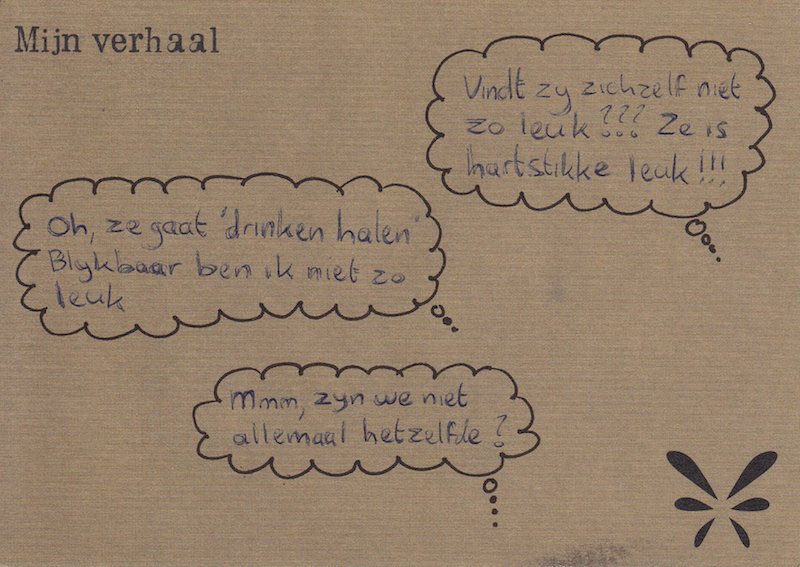 Mijn verhaal
Vindt zy zichzelf niet
zo leuk??? Ze is
hartstikke leuk!!!
Oh, ze gaat 'drinken halen'
Blykbaar ben ik niet zo
leuk
Mmm, zyn we niet
allemaal hetzelfde?